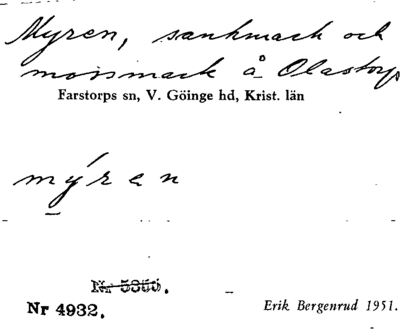 Myren, sankmark och
mossmark å Olastorp
Farstorps sn, V. Göinge hd, Krist. län
mýren
Nr 5350.
Nr 4932.
Erik Bergenrud 1951.